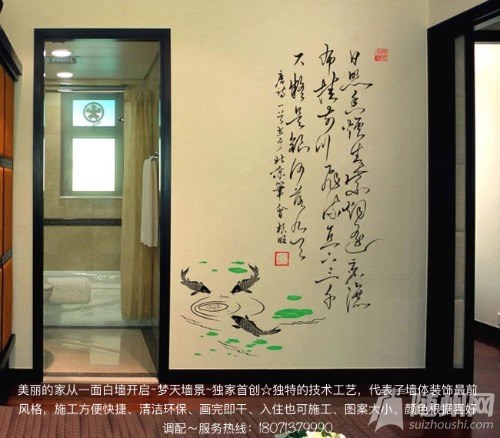 日照香爐生紫烟遥看瀑
布挂前川飛流直下三千
尺疑是銀河落九天
唐诗一首
美丽的家从一面白墙开启~梦天墙景~独家首创☆独特的技术工艺，代表了墙体装饰最前
风格，施工方便快捷、清洁环保、画完即干、入住也可施工、图案大小、颜色根据喜好
调配～服务热线：18071379990
随州网
suizhoushi.com